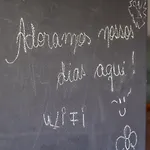 Adoramos nossos
dias aqui!